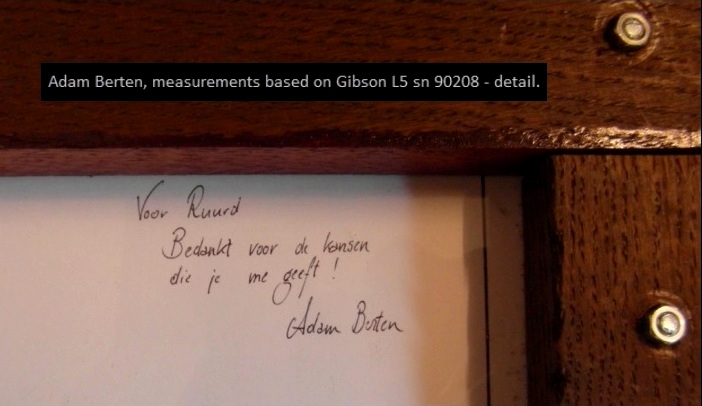 Adam Berten, measurements based on Gibson L5 sn 90208 - detail.
Voor Ruurd
Bedankt voor de kansen
die je me geeft !
Adam Berten